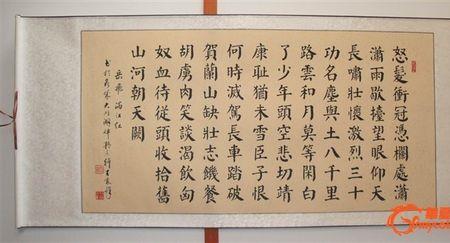 怒髮衝冠憑欄處瀟
瀟雨歇擡望眼仰天
長嘯壯懷激烈三十
功名塵與土八千里
路雲和月莫等閑白
了少年頭空悲切靖
康耻猶未雪臣子恨
何時滅駕長車踏破
賀蘭山缺壯志饑餐
胡虜肉笑談渴飲匈
奴血待從頭收拾舊
山河朝天闕
岳飛 滿江红